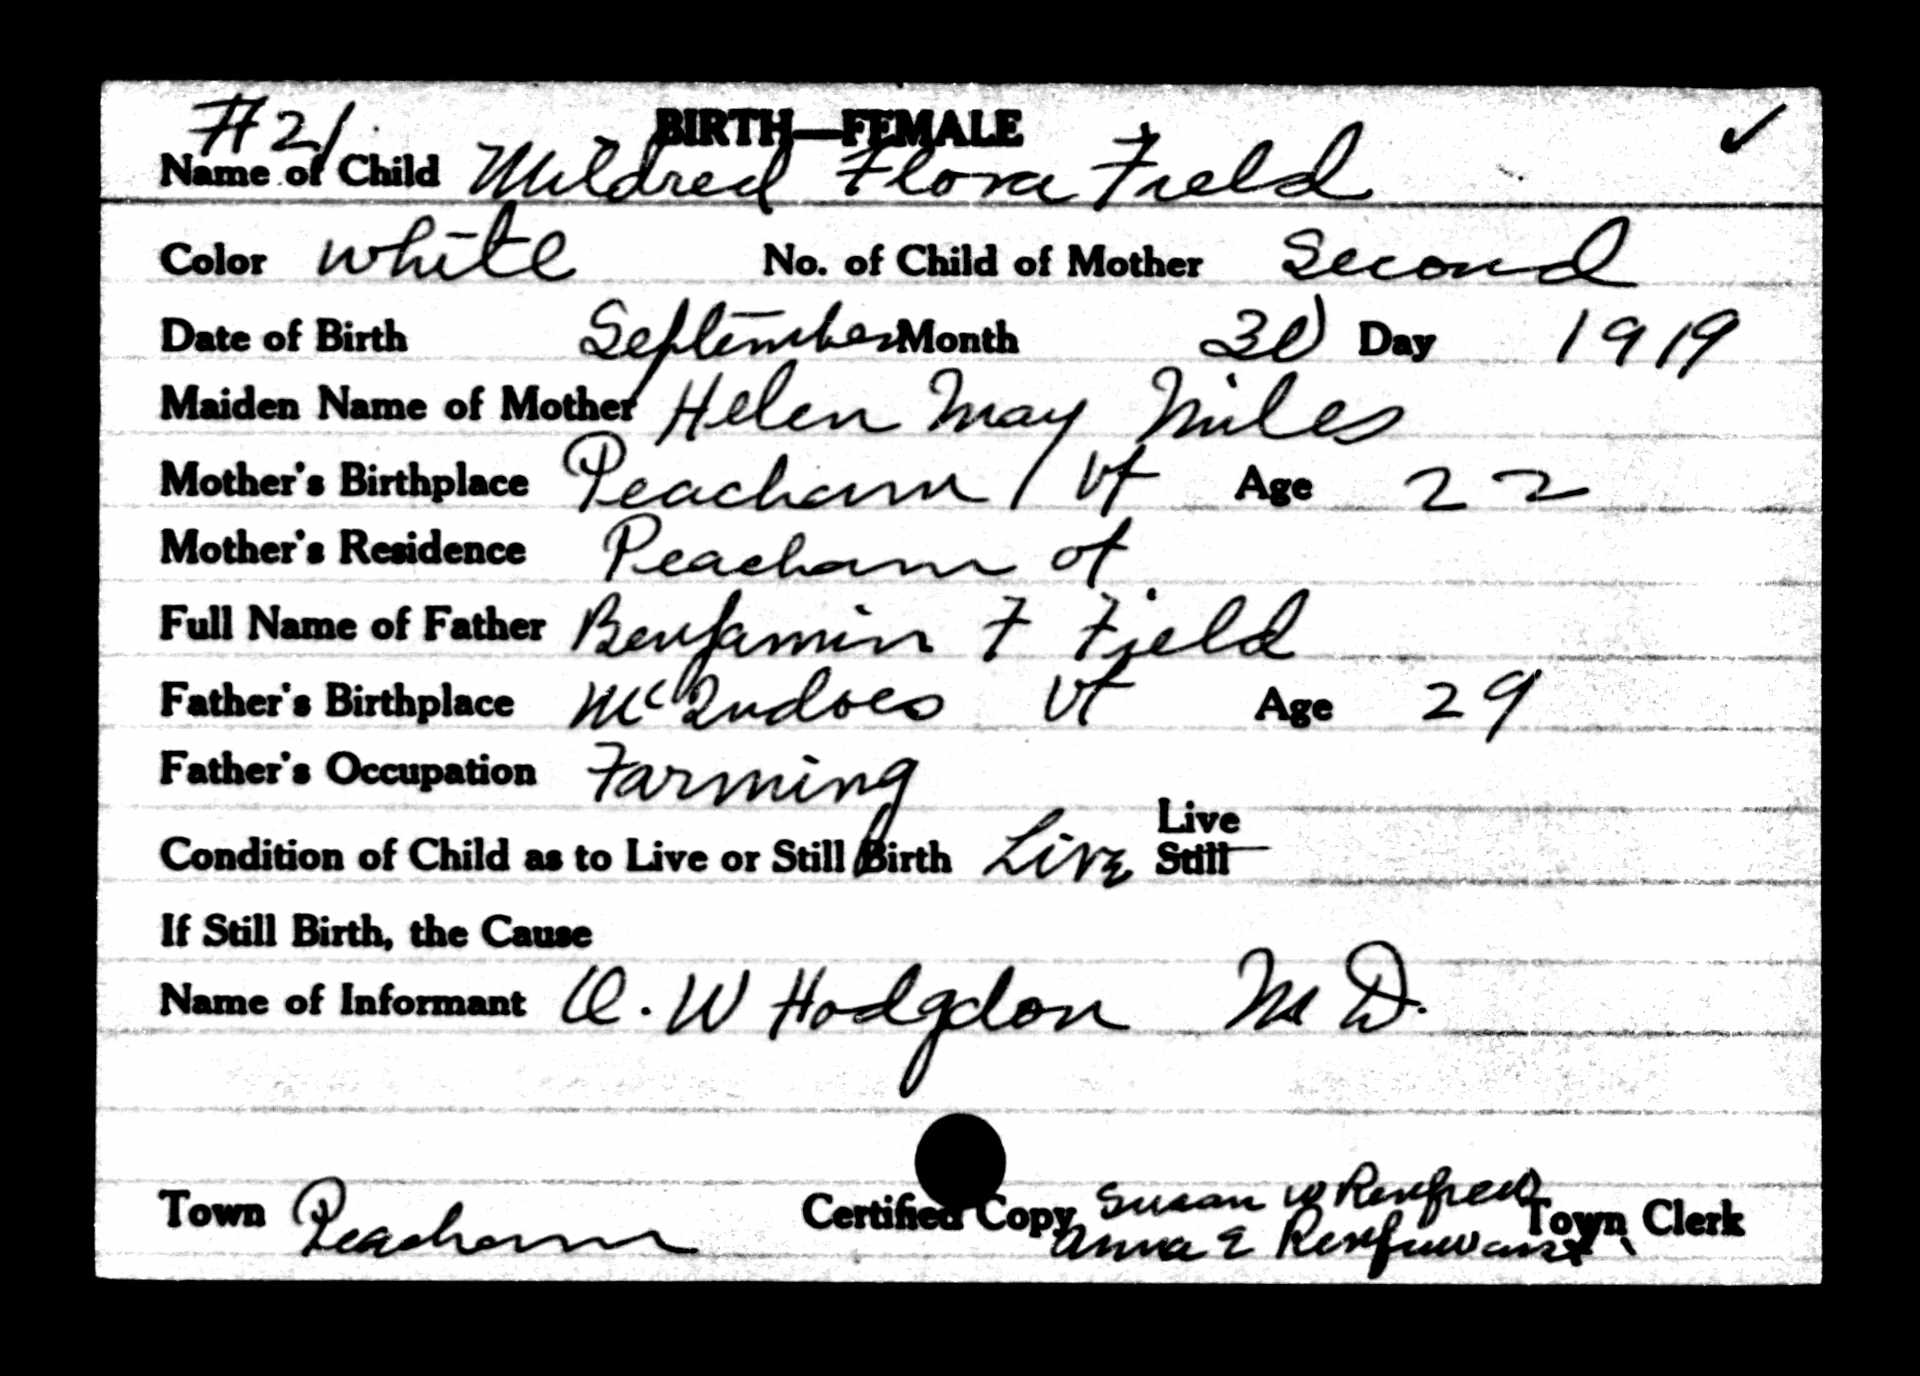 #21 BIRTH—FEMALE ✓
Name of Child Mildred Flora Field
Color white No. of Child of Mother Second
Date of Birth September Month 30 Day 1919
Maiden Name of Mother Helen May Miles
Mother's Birthplace Peacham, Vt Age 22
Mother's Residence Peacham Vt
Full Name of Father Benjamin F Field
Father's Birthplace McIndoes Vt Age 29
Father's Occupation Farming
Live
Condition of Child as to Live or Still Birth Live Still
If Still Birth, the Cause
Name of Informant O. W Hodgdon M D.
Town Peacham Certified Copy Susan W Renfrew Town Clerk
Anna E Renfrew asst